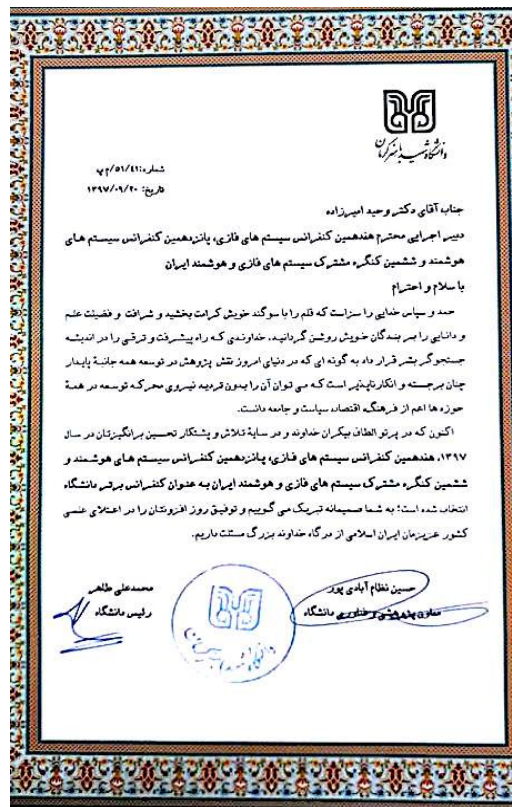 دانشگاه شهید باهنر کرمان
شماره: ۵۱/۴۲/م پ
تاریخ: ۱۳۹۷/۰۹/۲۰
جناب آقای دکتر وحید امیرزاده
دبیر اجرایی محترم هفدهمین کنفرانس سیستم های فازی، پانزدهمین کنفرانس سیستم های
هوشمند و ششمین کنگره مشترک سیستم های فازی و هوشمند ایران
با سلام و احترام
حمد و سپاس خدایی را سزاست که قلم را با سوگند خویش کرامت بخشید و شرافت و فضیلت علم
و دانایی را بر بندگان خویش روشن گردانید، خداوندی که راه پیشرفت و ترقی را در اندیشه
جستجوگر بشر قرار داد به گونه ای که در دنیای امروز نقش پژوهش در توسعه همه جانبۀ پایدار
چنان برجسته و انکارناپذیر است که می توان آن را بدون تردید نیروی محرکه توسعه در همۀ
حوزه ها اعم از فرهنگ، اقتصاد، سیاست و جامعه دانست.
اکنون که در پرتو الطاف بیکران خداوند و در سایۀ تلاش و پشتکار تحسین برانگیزتان در سال
۱۳۹۷، هفدهمین کنفرانس سیستم های فازی، پانزدهمین کنفرانس سیستم های هوشمند و
ششمین کنگره مشترک سیستم های فازی و هوشمند ایران به عنوان کنفرانس برتر دانشگاه
انتخاب شده است؛ به شما صمیمانه تبریک می گوییم و توفیق روز افزونتان را در اعتلای علمی
کشور عزیزمان ایران اسلامی از درگاه خداوند بزرگ مسئلت داریم.
حسین نظام آبادی پور
معاون پژوهشی و فناوری دانشگاه
محمدعلی طاهر
رئیس دانشگاه
دانشگاه شهید باهنر کرمان